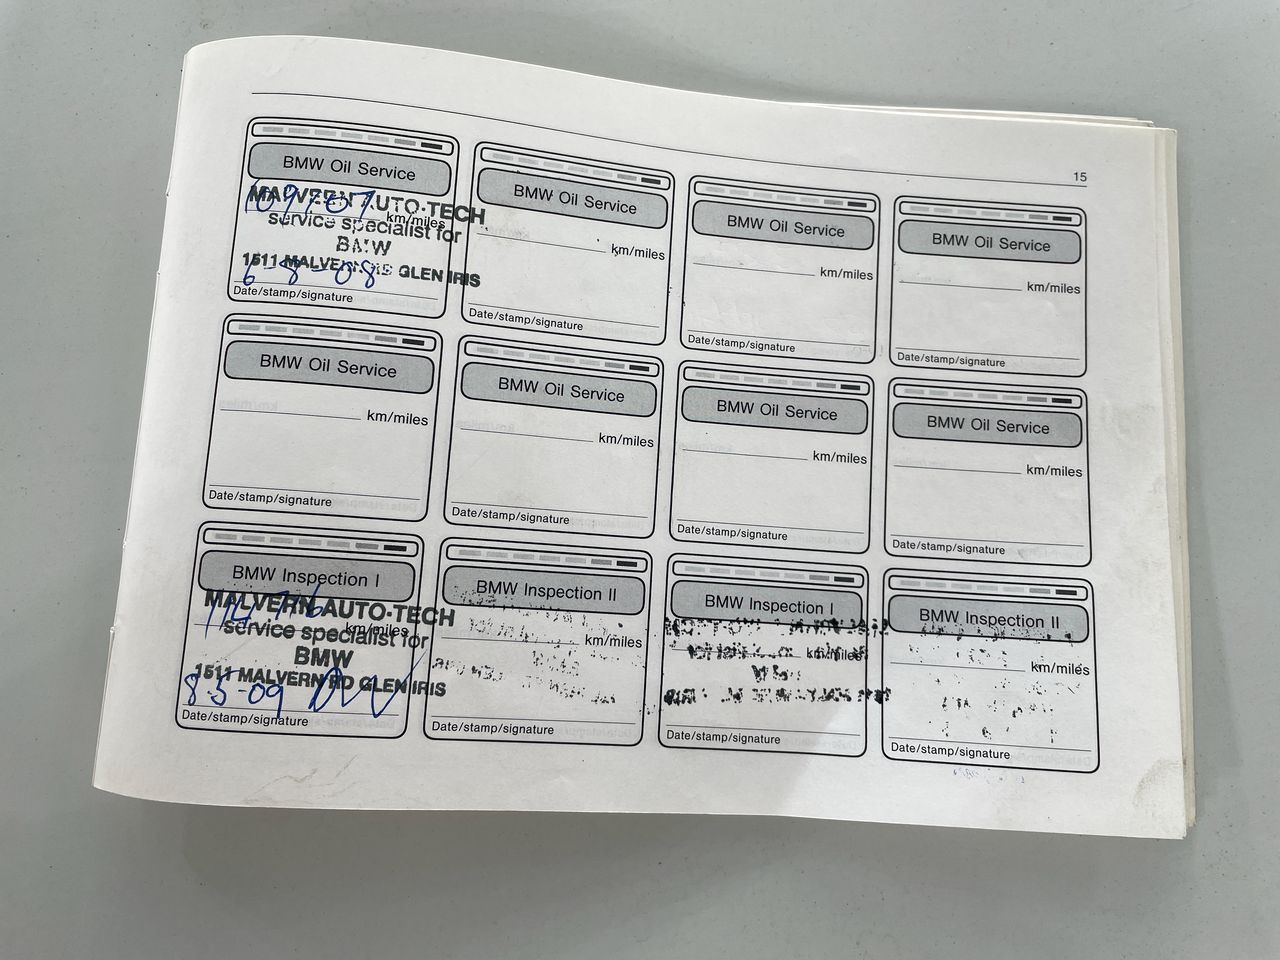 15
BMW Oil Service
MALVERN AUTO-TECH
km/miles
service specialist for
BMW
1511 MALVERN RD GLEN IRIS
6-8-08
Date/stamp/signature
BMW Oil Service
km/miles
Date/stamp/signature
BMW Oil Service
km/miles
Date/stamp/signature
BMW Oil Service
km/miles
Date/stamp/signature
BMW Oil Service
km/miles
Date/stamp/signature
BMW Oil Service
km/miles
Date/stamp/signature
BMW Oil Service
km/miles
Date/stamp/signature
BMW Oil Service
km/miles
Date/stamp/signature
BMW Inspection I
MALVERN AUTO-TECH
114 716
km/miles
service specialist for
BMW
1511 MALVERN RD GLEN IRIS
8-5-09
Date/stamp/signature
BMW Inspection II
km/miles
Date/stamp/signature
BMW Inspection I
km/miles
Date/stamp/signature
BMW Inspection II
km/miles
Date/stamp/signature